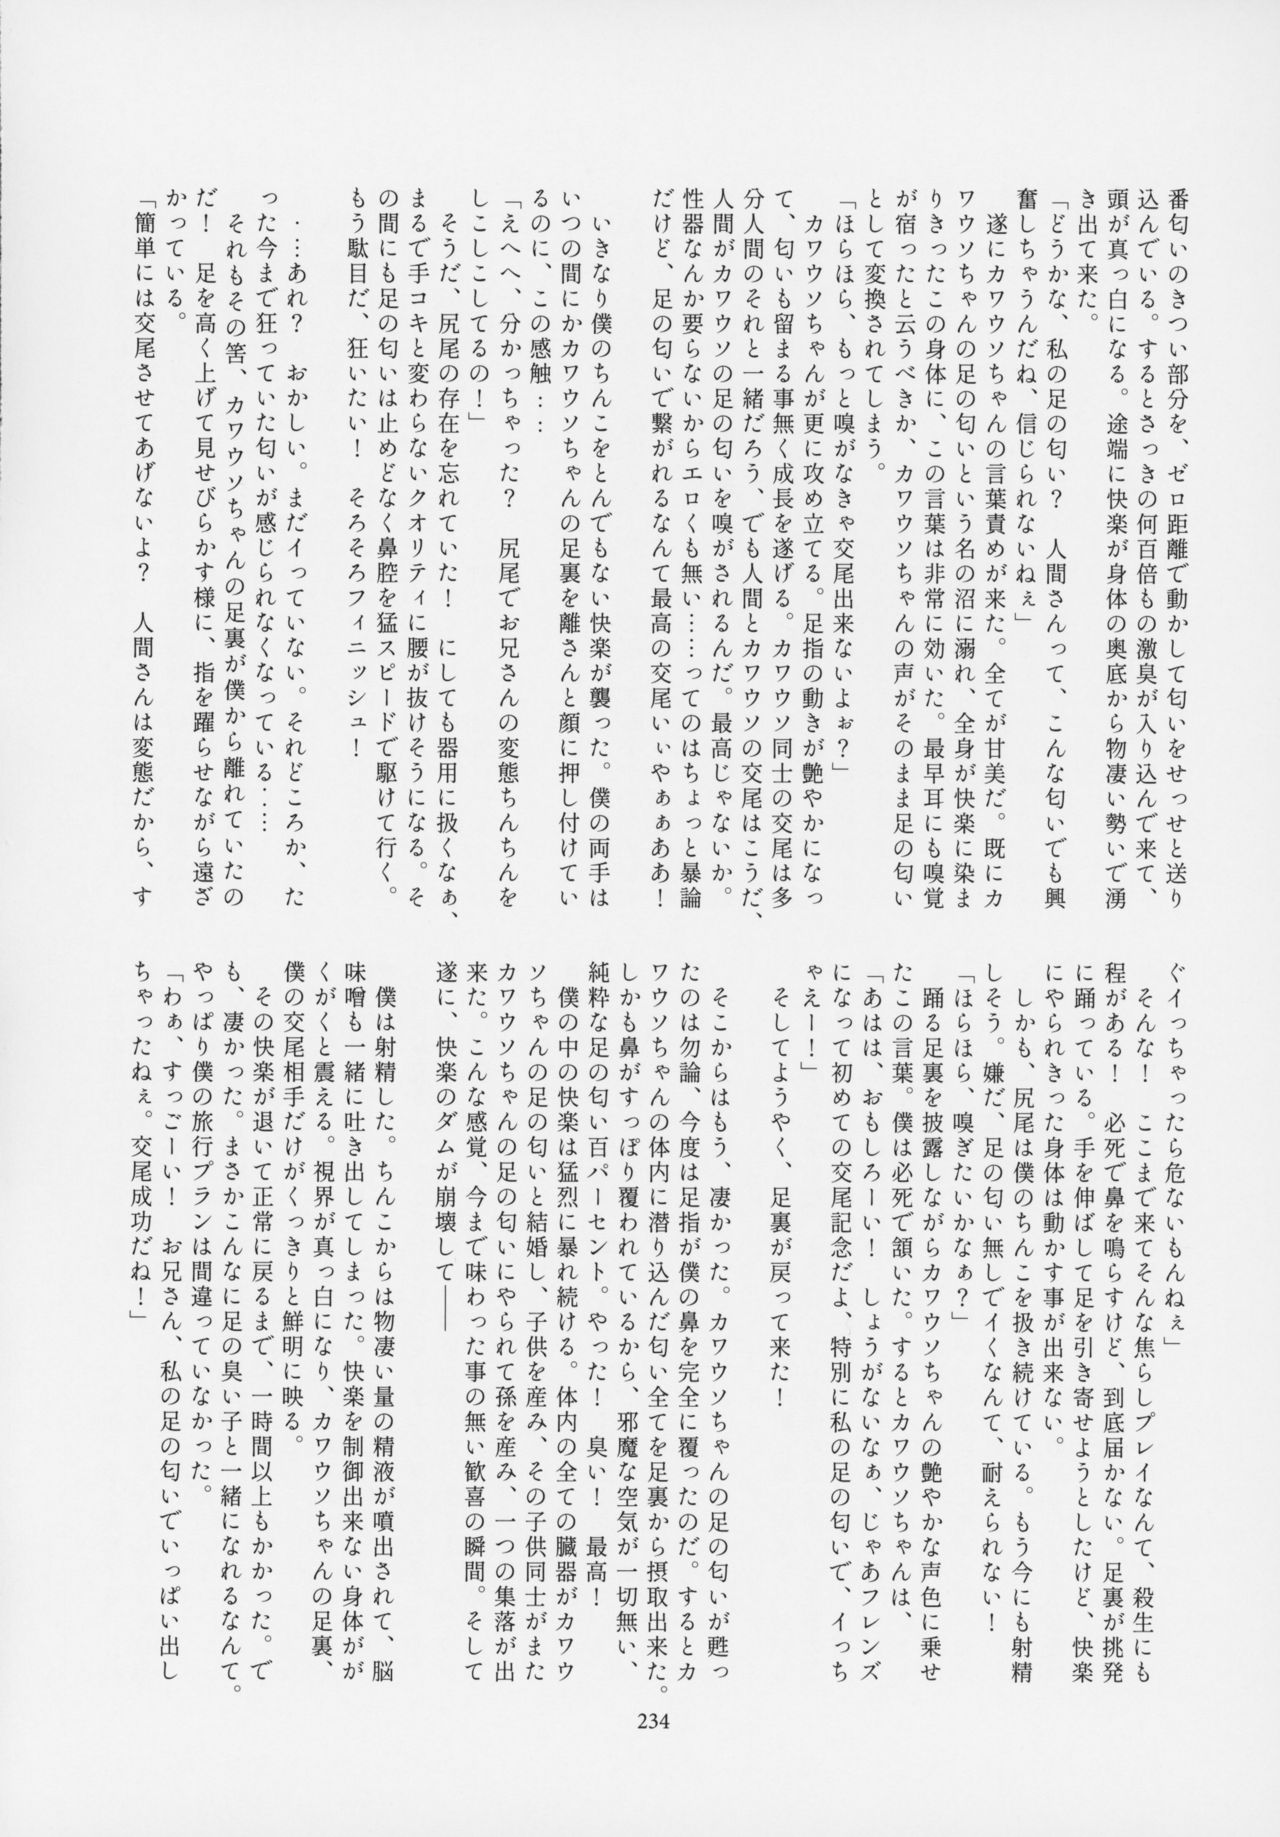 番匂いのきつい部分を、ゼロ距離で動かして匂いをせっせと送り
込んでいる。するとさっきの何百倍もの激臭が入り込んで来て、
頭が真っ白になる。途端に快楽が身体の奥底から物凄い勢いで湧
き出て来た。
「どうかな、私の足の匂い?　人間さんって、こんな匂いでも興
奮しちゃうんだね、信じられないねぇ」
　遂にカワウソちゃんの言葉責めが来た。全てが甘美だ。既にカ
ワウソちゃんの足の匂いという名の沼に溺れ、全身が快楽に染ま
りきったこの身体に、この言葉は非常に効いた。最早耳にも嗅覚
が宿ったと云うべきか、カワウソちゃんの声がそのまま足の匂い
として変換されてしまう。
「ほらほら、もっと嗅がなきゃ交尾出来ないよぉ?」
　カワウソちゃんが更に攻め立てる。足指の動きが艶やかになっ
て、匂いも留まる事無く成長を遂げる。カワウソ同士の交尾は多
分人間のそれと一緒だろう、でも人間とカワウソの交尾はこうだ、
人間がカワウソの足の匂いを嗅がされるんだ。最高じゃないか。
性器なんか要らないからエロくも無い……ってのはちょっと暴論
だけど、足の匂いで繋がれるなんて最高の交尾いぃやぁぁああ!
　いきなり僕のちんこをとんでもない快楽が襲った。僕の両手は
いつの間にかカワウソちゃんの足裏を離さんと顔に押し付けてい
るのに、この感触……
「えへへ、分かっちゃった?　尻尾でお兄さんの変態ちんちんを
しこしこしてるの!」
　そうだ、尻尾の存在を忘れていた!　にしても器用に扱くなぁ、
まるで手コキと変わらないクオリティに腰が抜けそうになる。そ
の間にも足の匂いは止めどなく鼻腔を猛スピードで駆けて行く。
もう駄目だ、狂いたい!　そろそろフィニッシュ!
　……あれ?　おかしい。まだイっていない。それどころか、た
った今まで狂っていた匂いが感じられなくなっている……
　それもその筈、カワウソちゃんの足裏が僕から離れていたの
だ!　足を高く上げて見せびらかす様に、指を躍らせながら遠ざ
かっている。
「簡単には交尾させてあげないよ?　人間さんは変態だから、す
ぐイっちゃったら危ないもんねぇ」
　そんな!　ここまで来てそんな焦らしプレイなんて、殺生にも
程がある!　必死で鼻を鳴らすけど、到底届かない。足裏が挑発
に踊っている。手を伸ばして足を引き寄せようとしたけど、快楽
にやられきった身体は動かす事が出来ない。
　しかも、尻尾は僕のちんこを扱き続けている。もう今にも射精
しそう。嫌だ、足の匂い無しでイくなんて、耐えられない!
「ほらほら、嗅ぎたいかなぁ?」
　踊る足裏を披露しながらカワウソちゃんの艶やかな声色に乗せ
たこの言葉。僕は必死で頷いた。するとカワウソちゃんは、
「あはは、おもしろーい!　しょうがないなぁ、じゃあフレンズ
になって初めての交尾記念だよ、特別に私の足の匂いで、イっち
ゃえー!」
　そしてようやく、足裏が戻って来た!
　そこからはもう、凄かった。カワウソちゃんの足の匂いが甦っ
たのは勿論、今度は足指が僕の鼻を完全に覆ったのだ。するとカ
ワウソちゃんの体内に潜り込んだ匂い全てを足裏から摂取出来た。
しかも鼻がすっぽり覆われているから、邪魔な空気が一切無い、
純粋な足の匂い百パーセント。やった!　臭い!　最高!
　僕の中の快楽は猛烈に暴れ続ける。体内の全ての臓器がカワウ
ソちゃんの足の匂いと結婚し、子供を産み、その子供同士がまた
カワウソちゃんの足の匂いにやられて孫を産み、一つの集落が出
来た。こんな感覚、今まで味わった事の無い歓喜の瞬間。そして
遂に、快楽のダムが崩壊して――
　僕は射精した。ちんこからは物凄い量の精液が噴出されて、脳
味噌も一緒に吐き出してしまった。快楽を制御出来ない身体がが
くがくと震える。視界が真っ白になり、カワウソちゃんの足裏、
僕の交尾相手だけがくっきりと鮮明に映る。
　その快楽が退いて正常に戻るまで、一時間以上もかかった。で
も、凄かった。まさかこんなに足の臭い子と一緒になれるなんて。
やっぱり僕の旅行プランは間違っていなかった。
「わぁ、すっごーい!　お兄さん、私の足の匂いでいっぱい出し
ちゃったねぇ。交尾成功だね!」
234